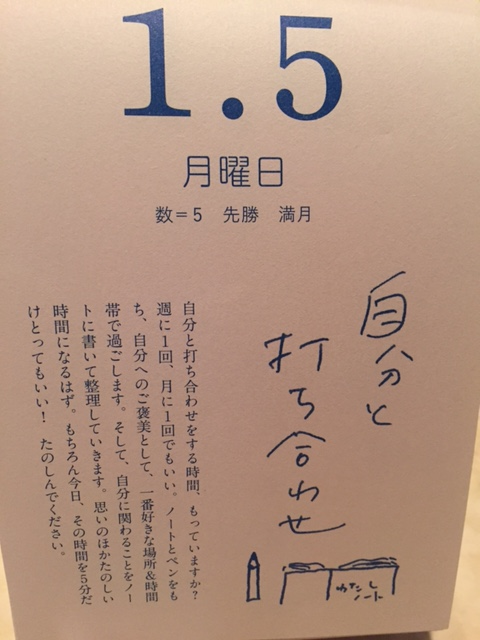 1.5
月曜日
数=5 先勝 満月
自分と
打ち合わせ
わたし
ノート
自分と打ち合わせをする時間、もっていますか?
週に1回、月に1回でもいい。ノートとペンをも
ち、自分へのご褒美として、一番好きな場所&時間
帯で過ごします。そして、自分に関わることをノー
トに書いて整理していきます。思いのほかたのしい
時間になるはず。もちろん今日、その時間を5分だ
けとってもいい! たのしんでください。